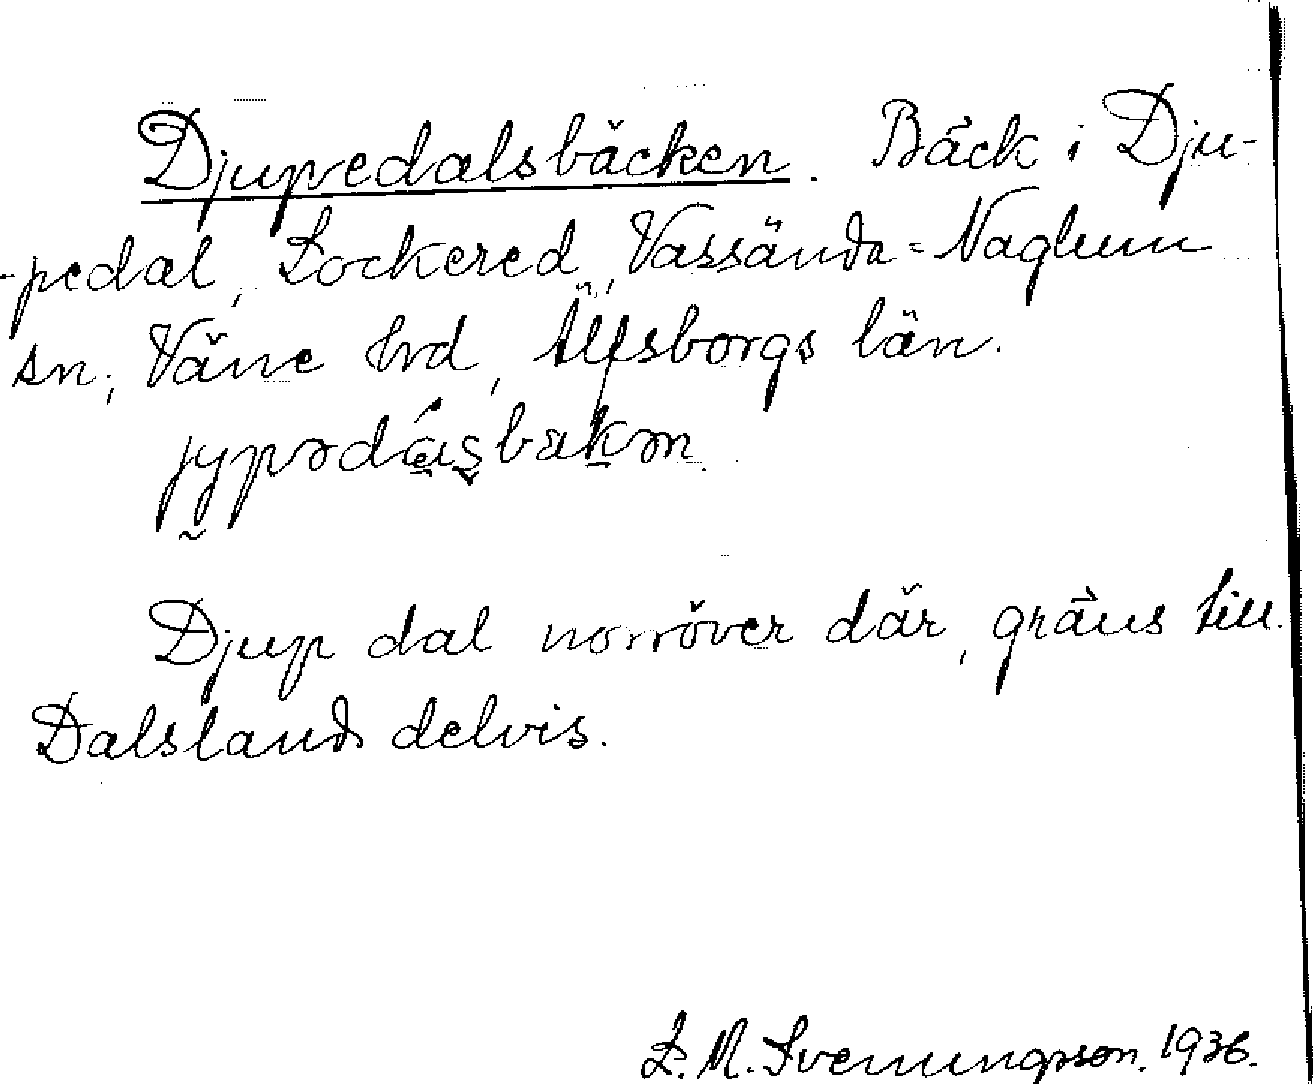 Djupedalsbäcken. Bäck i Dju-
-pedal, Lockered, Vassända-Naglum
sn, Väne hrd, Älfsborgs län.
Djup dal norröver där, gräns till
Dalsland delvis.
L. M. Svenungsson. 1936.